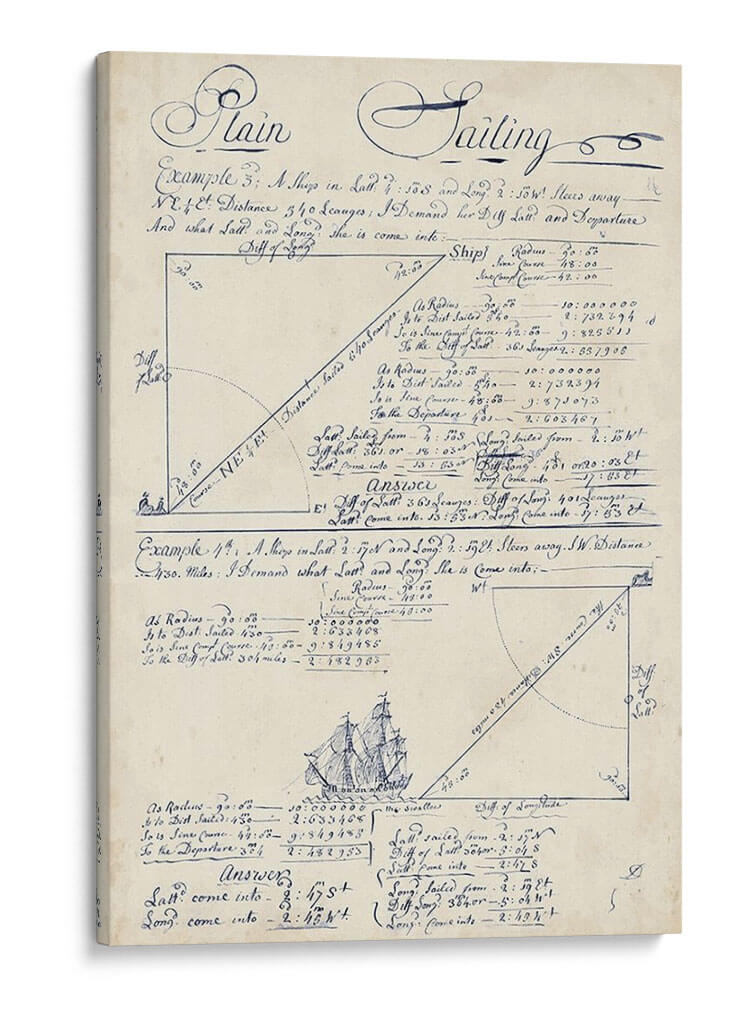 Plain Sailing
Example 3; A Ship in Latt: 4:10 S and Long: 2:10 Wt Steers away
NE¼Et Distance 540 Leauges; I Demand her Diff Latt: and Departure
And what Latt: and Long: She is come into:
Diff of Long:
90:00
42:00
Diff of Latt:
Distance Sailed 540 Leauges
48:00
Course NE¼Et
Et
Ship
Radius 90:00
Sine Course 48:00
Sine Compt Course 42:00
As Radius 90:00 10:000000
Is to Dist Sailed 540 2:732394
So is Sine Compt Course 42:00 9:825511
To the Diff of Latt: 361 Leauges 2:557905
As Radius 90:00 10:000000
Is to Dist Sailed 540 2:732394
So is Sine Course 48:00 9:871073
To the Departure 401 2:603467
Latt: Sailed from 4:10 S
Diff Latt: 361 or 18:03 N
Latt: Come into 13:53 N
Long: Sailed from 2:10 Wt
Diff Long: 401 or 20:03 Et
Long: Come into 17:53 Et
Answer
Diff of Latt: 361 Leauges: Diff of Long: 401 Leauges
Latt: Come into 13:53 N: Long: Come into 17:53 Et
Example 4th; A Ship in Latt: 2:17 N and Long: 2:19 Et Steers away SW. Distance
430. Miles; I Demand what Latt: and Long: She is Come into;
Radius 90:00
Sine Course
Sine Compt Course
Wt
As Radius 90:00 10:000000
Is to Dist Sailed 430 2:633468
So is Sine Compt Course 9:849485
To the Diff of Latt: 304 miles 2:482953
The Course SW. Distance 430 miles
Diff of Latt:
90:00
the swallow
Diff of Longitude
As Radius 90:00 10:000000
Is to Dist Sailed: 430 2:633468
So is Sine Course 9:849485
To the Departure 304 2:482953
Latt: sailed from 2:17 N
Diff of Latt: 304 or 5:04 S
Latt: come into 2:47 S
Answer
Latt: come into 2:47 St
Long: come into 2:45 Wt
Long: Sailed from 2:19 Et
Diff Long: 304 or 5:04 Wt
Long: Come into 2:45 Wt